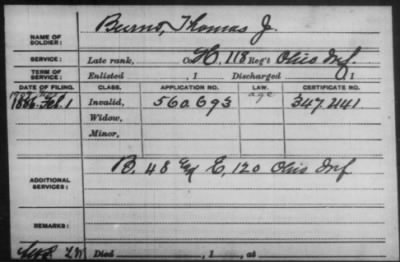 NAME OF SOLDIER: Burns, Thomas J.
SERVICE: Late rank, Co. H, 118 Reg't Ohio Inf.
TERM OF SERVICE: Enlisted , 1 Discharged , 1
DATE OF FILING. CLASS. APPLICATION NO. LAW. CERTIFICATE NO.
1886 Feb. 1 Invalid, 560693 age 347241
Widow,
Minor,
ADDITIONAL SERVICES: B. 48 & E, 120 Ohio Inf
REMARKS:
Died , 1 , at